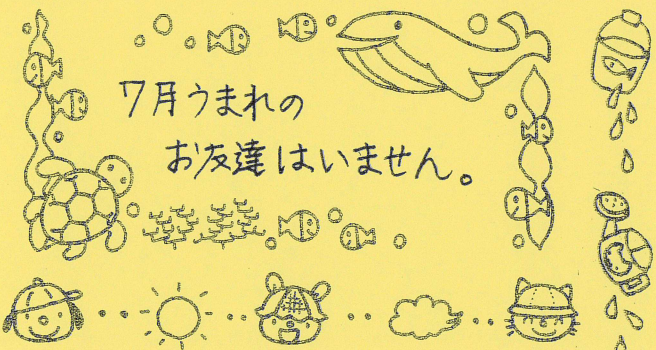 7月うまれの
お友達はいません。